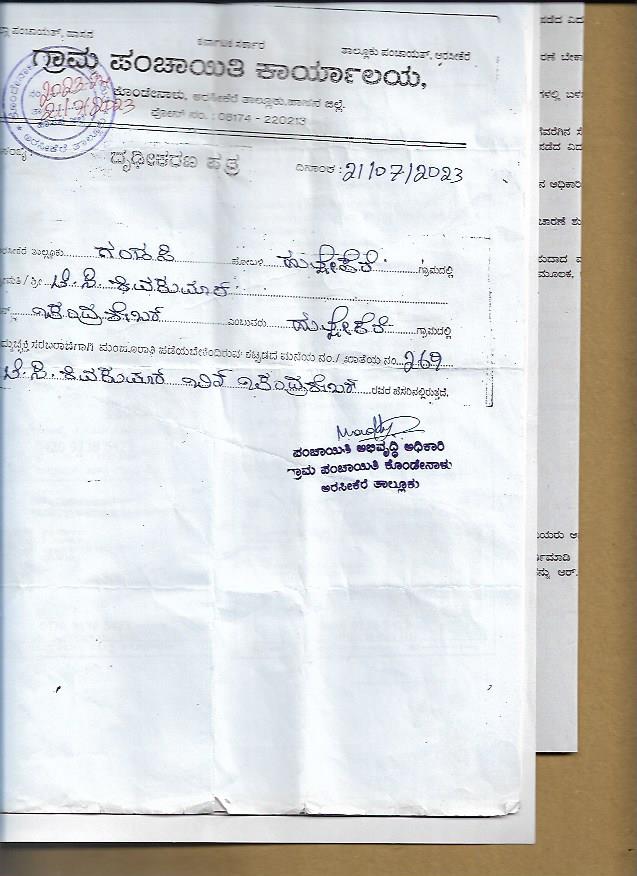 ಪಂಚಾಯತ್, ಹಾಸನ
ಕರ್ನಾಟಕ ಸರ್ಕಾರ
ತಾಲ್ಲೂಕು ಪಂಚಾಯತ್, ಅರಸೀಕೆರೆ
ಗ್ರಾಮ ಪಂಚಾಯಿತಿ ಕಾರ್ಯಾಲಯ,
ಕೊಂಡೇನಾಳು, ಅರಸೀಕೆರೆ ತಾಲ್ಲೂಕು,ಹಾಸನ ಜಿಲ್ಲೆ.
ಫೋನ್ ನಂ. : 08174 - 220213
ದೃಢೀಕರಣ ಪತ್ರ
ದಿನಾಂಕ : 21/07/2023
ಅರಸೀಕೆರೆ ತಾಲ್ಲೂಕು ಗಂಡಸಿ ಹೋಬಳಿ ಗ್ರಾಮದಲ್ಲಿ
ಶ್ರೀಮತಿ / ಶ್ರೀ ಟಿ. ಸಿ. ಶಿವಕುಮಾರ
ಚಂದ್ರಶೇಖರ ಎಂಬುವರು ಗ್ರಾಮದಲ್ಲಿ
ಸರಬರಾಜಿಗಾಗಿ ಮಂಜೂರಾತಿ ಪಡೆಯಬೇಕೆಂದಿರುವ ಕಟ್ಟಡದ ಮನೆಯ ನಂ./ ಖಾತೆಯ ನಂ. 269
ಟಿ. ಸಿ. ಶಿವಕುಮಾರ್ ಬಿನ್ ಚಂದ್ರಶೇಖರ ರವರ ಹೆಸರಿನಲ್ಲಿರುತ್ತದೆ.
ಪಂಚಾಯಿತಿ ಅಭಿವೃದ್ಧಿ ಅಧಿಕಾರಿ
ಗ್ರಾಮ ಪಂಚಾಯಿತಿ ಕೊಂಡೇನಾಳು
ಅರಸೀಕೆರೆ ತಾಲ್ಲೂಕು